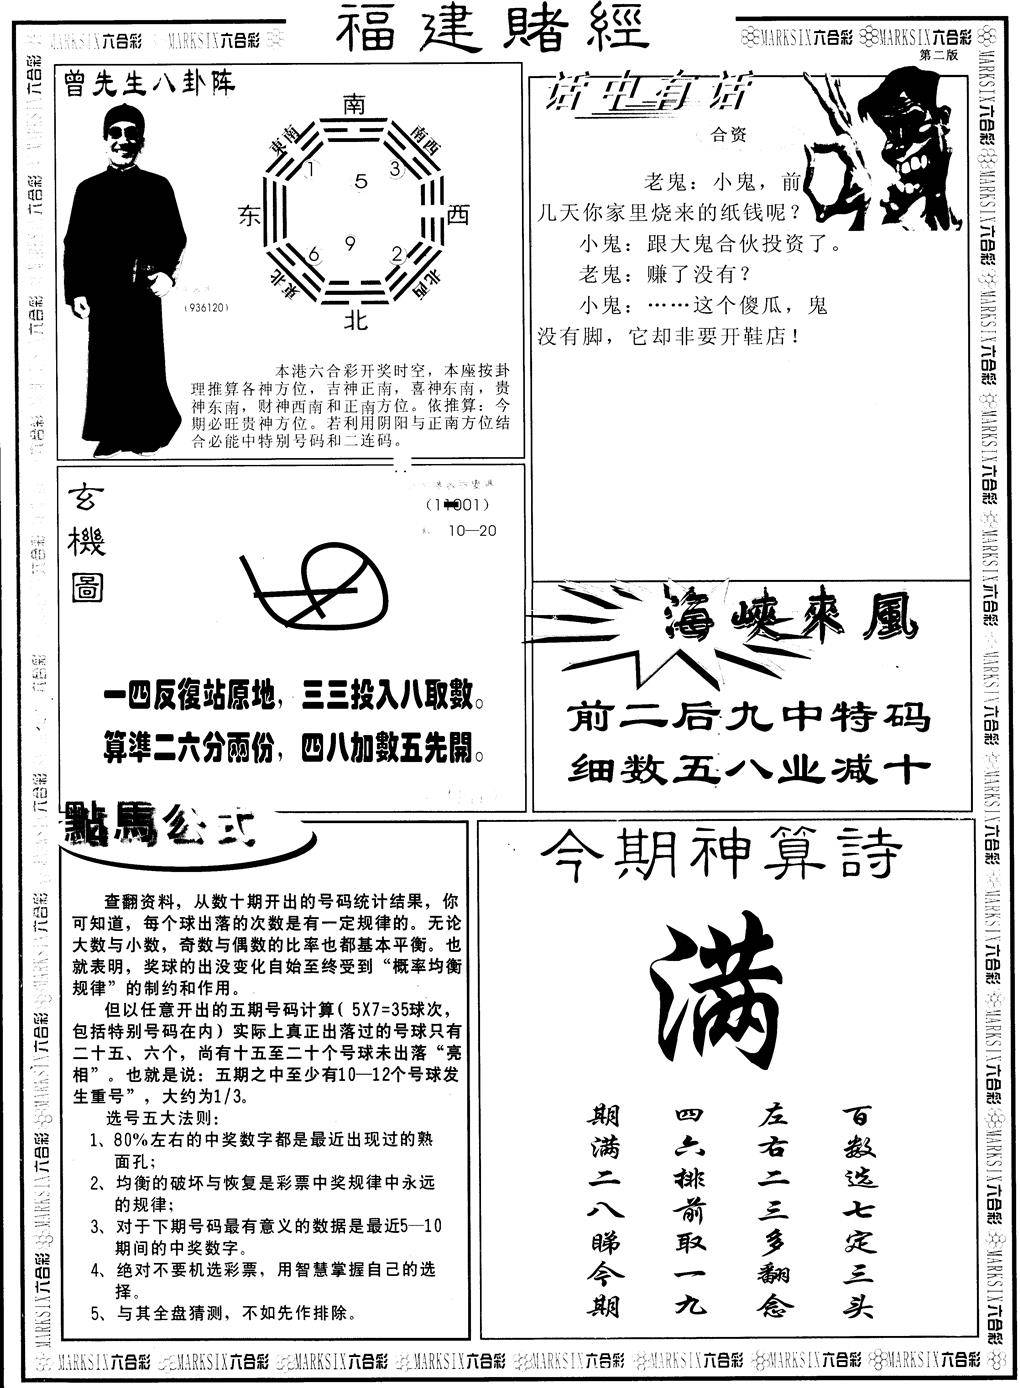 福建賭經
MARKSIX六合彩 MARKSIX六合彩
MARKSIX六合彩 MARKSIX六合彩
第二版
曾先生八卦阵
南
東南
南西
1
3
5
东
西
6
9
2
東北
北西
北
(936120)
本港六合彩开奖时空，本座按卦
理推算各神方位，吉神正南，喜神东南，贵
神东南，财神西南和正南方位。依推算：今
期必旺贵神方位。若利用阴阳与正南方位结
合必能中特别号码和二连码。
话中有话
合资
老鬼：小鬼，前
几天你家里烧来的纸钱呢？
小鬼：跟大鬼合伙投资了。
老鬼：赚了没有？
小鬼：……这个傻瓜，鬼
没有脚，它却非要开鞋店！
玄機圖
10—20
一四反復站原地，三三投入八取數。
算準二六分兩份，四八加數五先開。
海峽來風
前二后九中特码
细数五八业减十
點馬公式
查翻资料，从数十期开出的号码统计结果，你
可知道，每个球出落的次数是有一定规律的。无论
大数与小数，奇数与偶数的比率也都基本平衡。也
就表明，奖球的出没变化自始至终受到“概率均衡
规律”的制约和作用。
但以任意开出的五期号码计算( 5X7=35球次，
包括特别号码在内）实际上真正出落过的号球只有
二十五、六个，尚有十五至二十个号球未出落“亮
相”。也就是说：五期之中至少有10—12个号球发
生重号”，大约为1/3。
选号五大法则：
1、80%左右的中奖数字都是最近出现过的熟
面孔；
2、均衡的破坏与恢复是彩票中奖规律中永远
的规律；
3、对于下期号码最有意义的数据是最近5—10
期间的中奖数字。
4、绝对不要机选彩票，用智慧掌握自己的选
择。
5、与其全盘猜测，不如先作排除。
今期神算詩
满
百数选七定三头
左右二三多翻念
四六排前取一九
期满二八睇今期
MARKSIX六合彩 MARKSIX六合彩 MARKSIX六合彩 MARKSIX六合彩 MARKSIX六合彩 MARKSIX六合彩 MARKSIX六合彩 MARKSIX六合彩